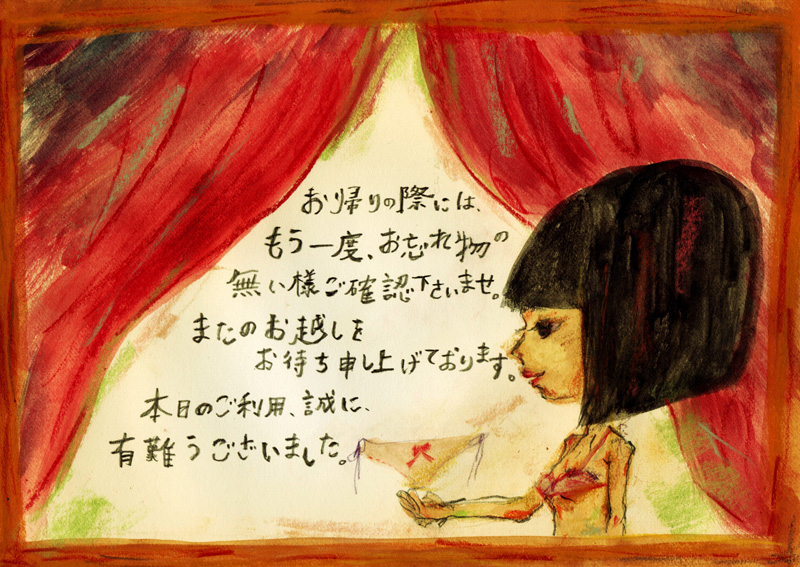 お帰りの際には、
もう一度、お忘れ物の
無い様ご確認下さいませ。
またのお越しを
お待ち申し上げております。
本日のご利用、誠に、
有難うございました。